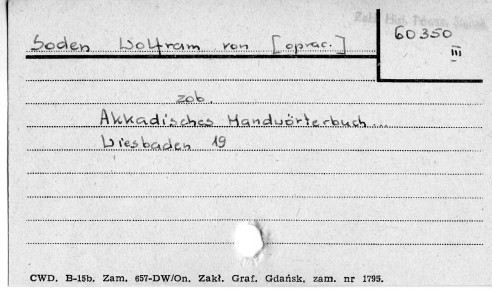 Zakł. Hist. Powsz. Staroż.
Soden Wolfram von [oprac.]
60350
III
zob.
Akkadisches Handwörterbuch...
Wiesbaden 19
CWD. B-15b. Zam. 657-DW/On. Zakł. Graf. Gdańsk, zam. nr 1795.